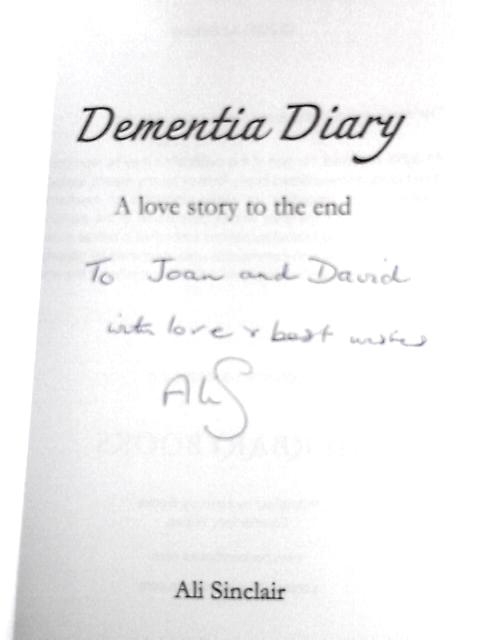 Dementia Diary
A love story to the end
To Joan and David
with love & best wishes
Ali S
Ali Sinclair